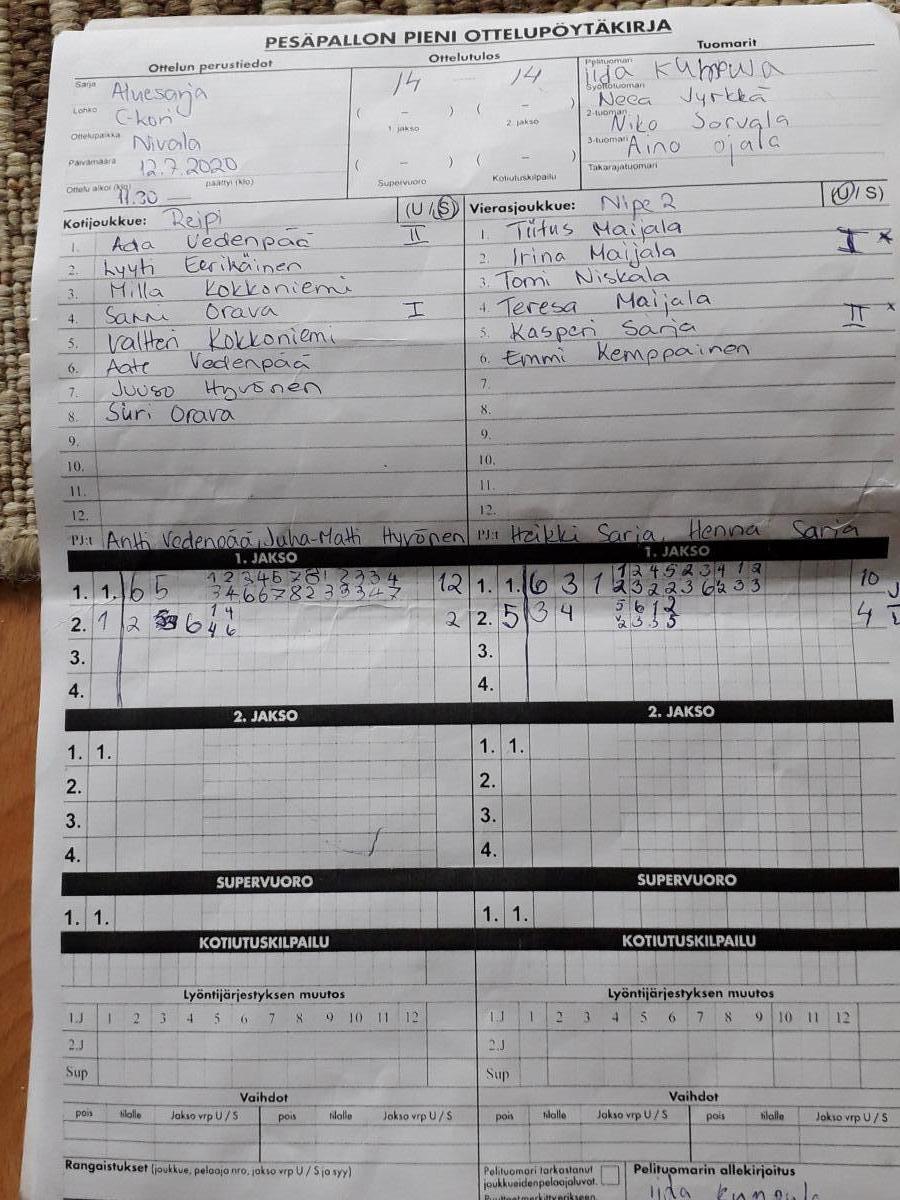 PESÄPALLON PIENI OTTELUPÖYTÄKIRJA
Ottelun perustiedot
Ottelutulos
Tuomarit
Sarja Aluesarja
Lohko C-kori
Ottelupaikka Nivala
Päivämäärä 12.7.2020
Ottelu alkoi (klo) 11.30 — päättyi (klo)
14 14
( - ) ( - )
1. jakso 2. jakso
( - ) ( - )
Supervuoro Kotiutuskilpailu
Pelituomari Iida
Syöttötuomari Neea Jyrkkä
2-tuomari Niko Sorvala
3-tuomari Aino Ojala
Takarajatuomari
Kotijoukkue: Reipi (U/S)
1. Ada Vedenpää II
2. Lyyti Eerikäinen
3. Milla Kokkoniemi
4. Sanni Orava I
5. Valtteri Kokkoniemi
6. Aate Vedenpää
7. Juuso Hyvönen
8. Suri Orava
9.
10.
11.
12.
PJ:t Antti Vedenpää, Juha-Matti Hyvönen
Vierasjoukkue: Nipe 2 (U/S)
1. Tiitus Maijala
2. Irina Maijala I *
3. Tomi Niskala
4. Teresa Maijala
5. Kasperi Sarja II *
6. Emmi Kemppainen
7.
8.
9.
10.
11.
12.
PJ:t Heikki Sarja, Henna Sarja
1. JAKSO
1. 1. 6 5 12
2. 1 2 6 1 4 2
4 6
3.
4.
1. JAKSO
1. 1. 6 3 1 1 2 4 5 2 3 4 1 2 10
2 3 2 2 3 6 2 3 3
2. 5 3 4 5 6 1 2 4
3.
4.
2. JAKSO
1. 1.
2.
3.
4.
2. JAKSO
1. 1.
2.
3.
4.
SUPERVUORO
1. 1.
SUPERVUORO
1. 1.
KOTIUTUSKILPAILU
KOTIUTUSKILPAILU
Lyöntijärjestyksen muutos
1.J 1 2 3 4 5 6 7 8 9 10 11 12
2.J
Sup
Lyöntijärjestyksen muutos
1.J 1 2 3 4 5 6 7 8 9 10 11 12
2.J
Sup
Vaihdot
pois tilalle Jakso vrp U / S pois tilalle Jakso vrp U / S
Vaihdot
pois tilalle Jakso vrp U / S pois tilalle Jakso vrp U / S
Rangaistukset (joukkue, pelaaja nro, jakso vrp U / S ja syy)
Pelituomari tarkastanut
joukkueiden pelaajaluvat.
Pelituomarin allekirjoitus
Iida